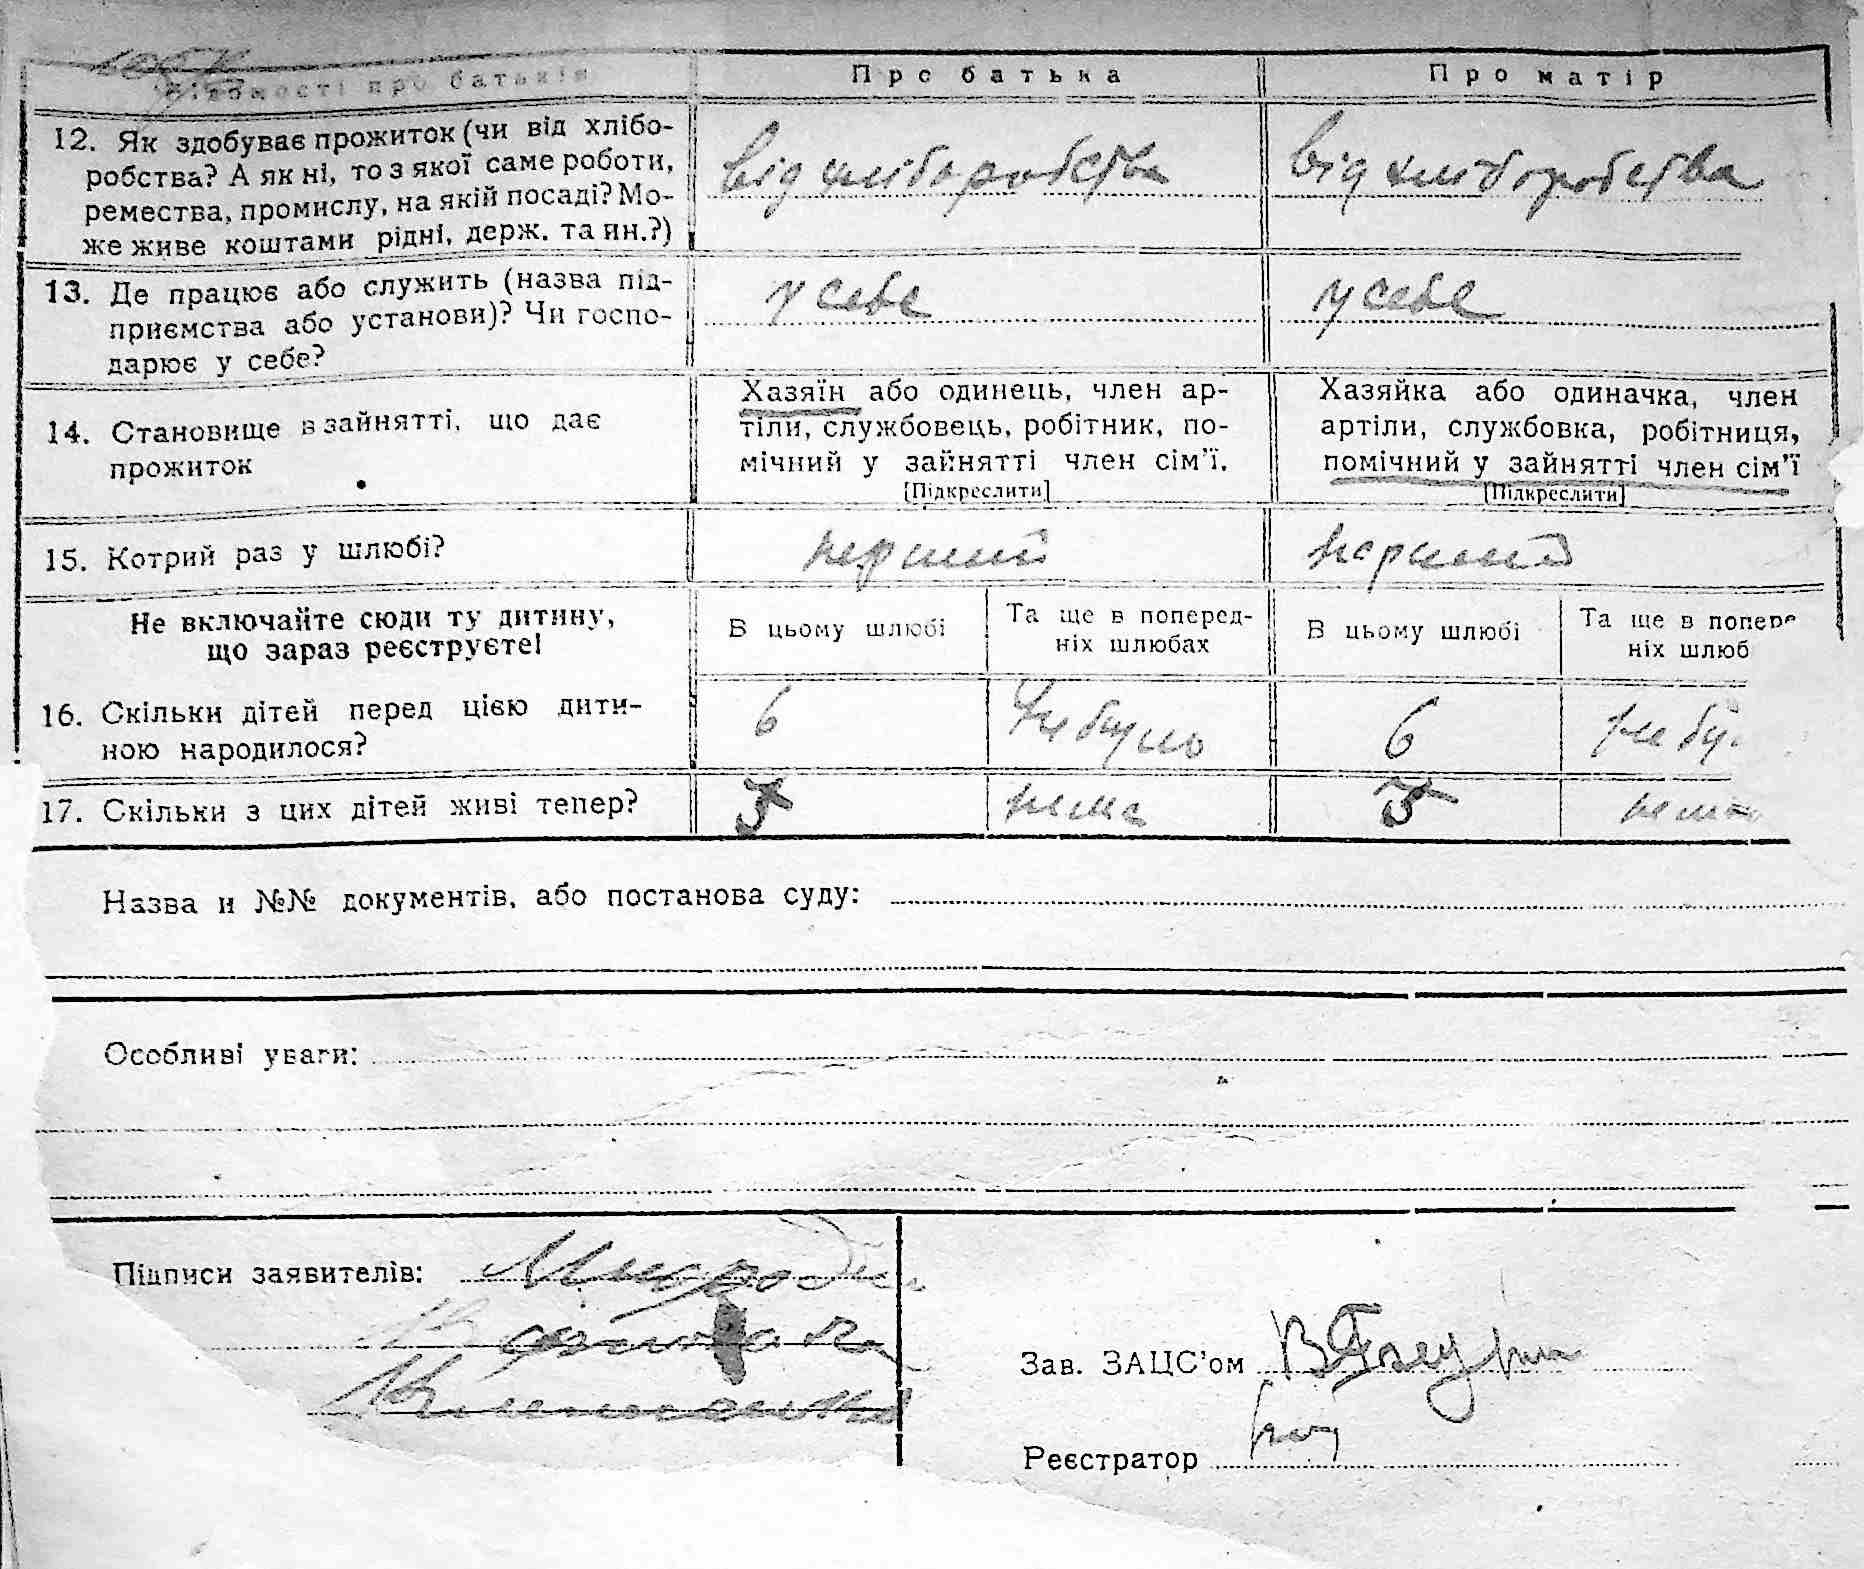 Відомості про батьків
Про батька
Про матір
12. Як здобуває прожиток (чи від хлібо-
робства? А як ні, то з якої саме роботи,
ремества, промислу, на якій посаді? Мо-
же живе коштами рідні, держ. та ин.?)
від хліборобства
від хліборобства
13. Де працює або служить (назва під-
приємства або установи)? Чи госпо-
дарює у себе?
у себе
у себе
14. Становище в зайнятті, що дає
прожиток
Хазяїн або одинець, член ар-
тіли, службовець, робітник, по-
мічний у зайнятті член сім'ї.
[Підкреслити]
Хазяйка або одиначка, член
артіли, службовка, робітниця,
помічний у зайнятті член сім'ї
[Підкреслити]
15. Котрий раз у шлюбі?
перший
перший
Не включайте сюди ту дитину,
що зараз реєструєте!
В цьому шлюбі
Та ще в поперед-
ніх шлюбах
В цьому шлюбі
Та ще в попере
ніх шлюб
16. Скільки дітей перед цією дити-
ною народилося?
6
не було
6
не бу
17. Скільки з цих дітей живі тепер?
5
нема
5
нема
Назва и №№ документів, або постанова суду:
Особливі уваги:
Підписи заявителів:
Зав. ЗАЦС'ом
Реєстратор